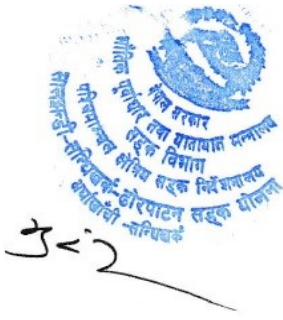 नेपाल सरकार
भौतिक पूर्वाधार तथा यातायात मन्त्रालय
सडक विभाग
पश्चिमाञ्चल क्षेत्रिय सडक निर्देशनालय
सालझण्डी-सन्धिखर्क-ढोरपाटन सडक योजना
सन्धिखर्क